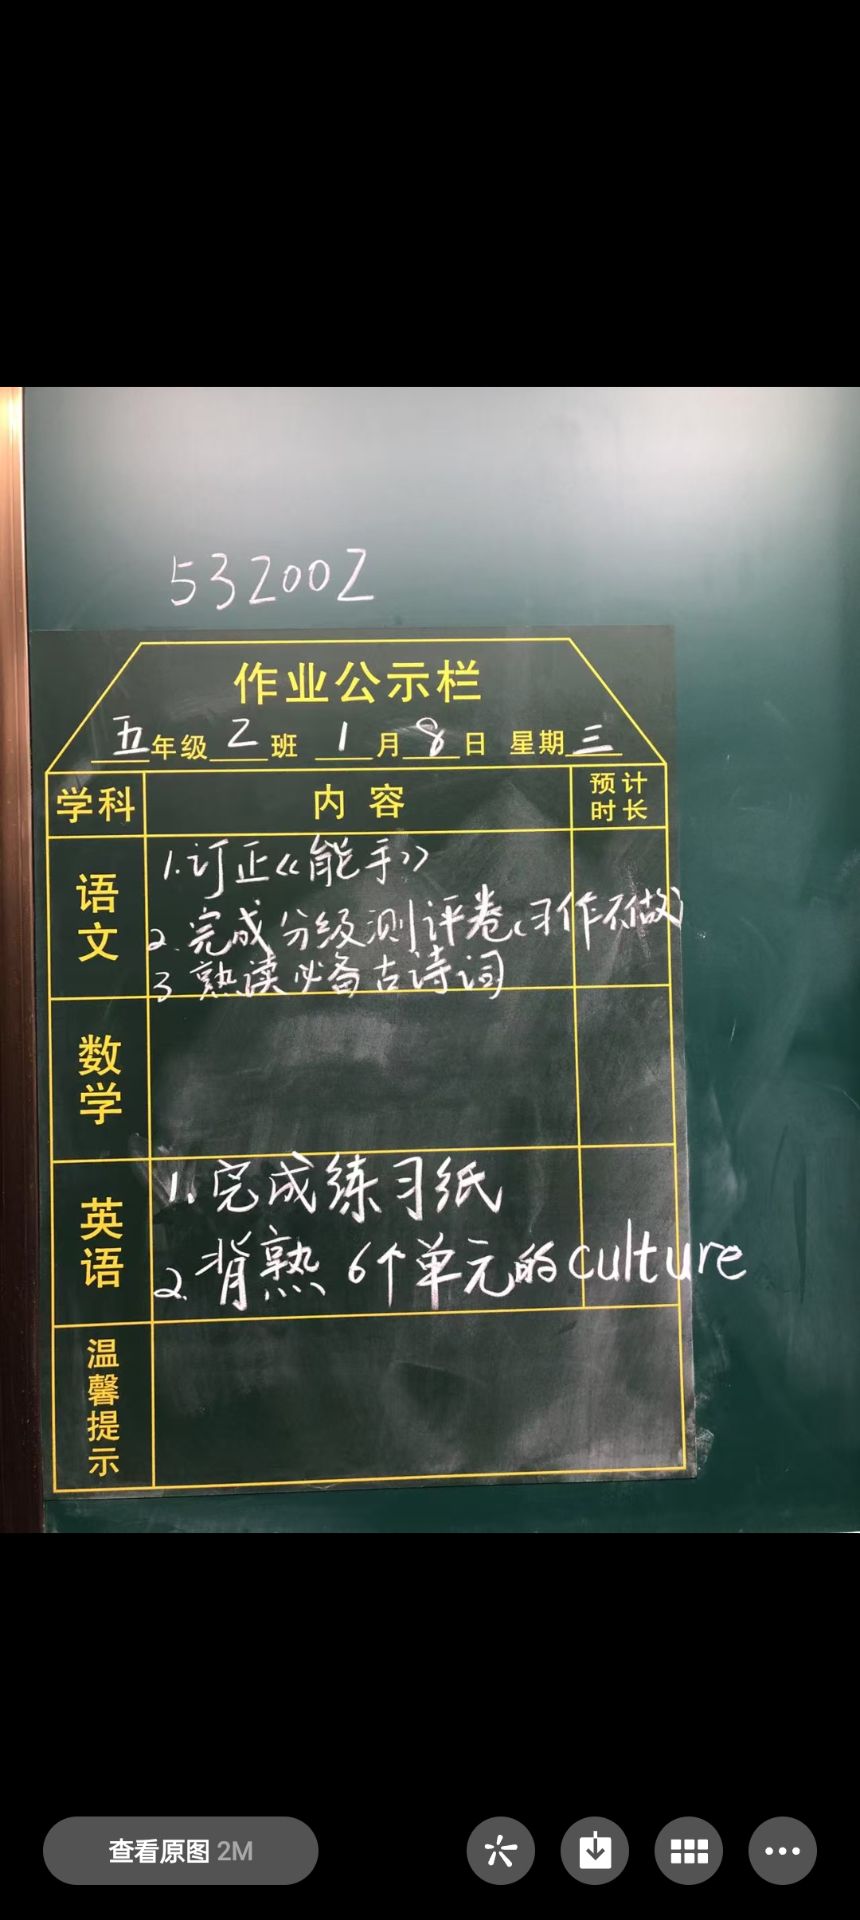 532002
作业公示栏
五年级2班 1月8日 星期三
学科 内容 预计时长
语文
1.订正《能手》
2.完成分级测评卷(习作不做)
3 熟读必备古诗词
数学
英语
1.完成练习纸
2.背熟6个单元的culture
温馨提示
查看原图 2M